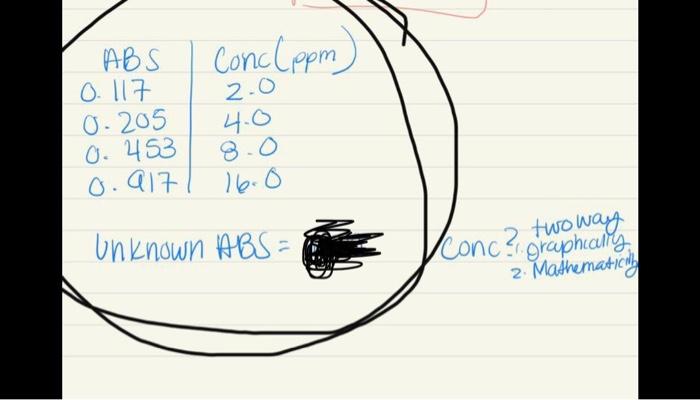 ABS Conc(ppm)
0.117 2.0
0.205 4.0
0.453 8.0
0.917 16.0
Unknown ABS =
Conc? two way
1. graphically
2. Mathematically